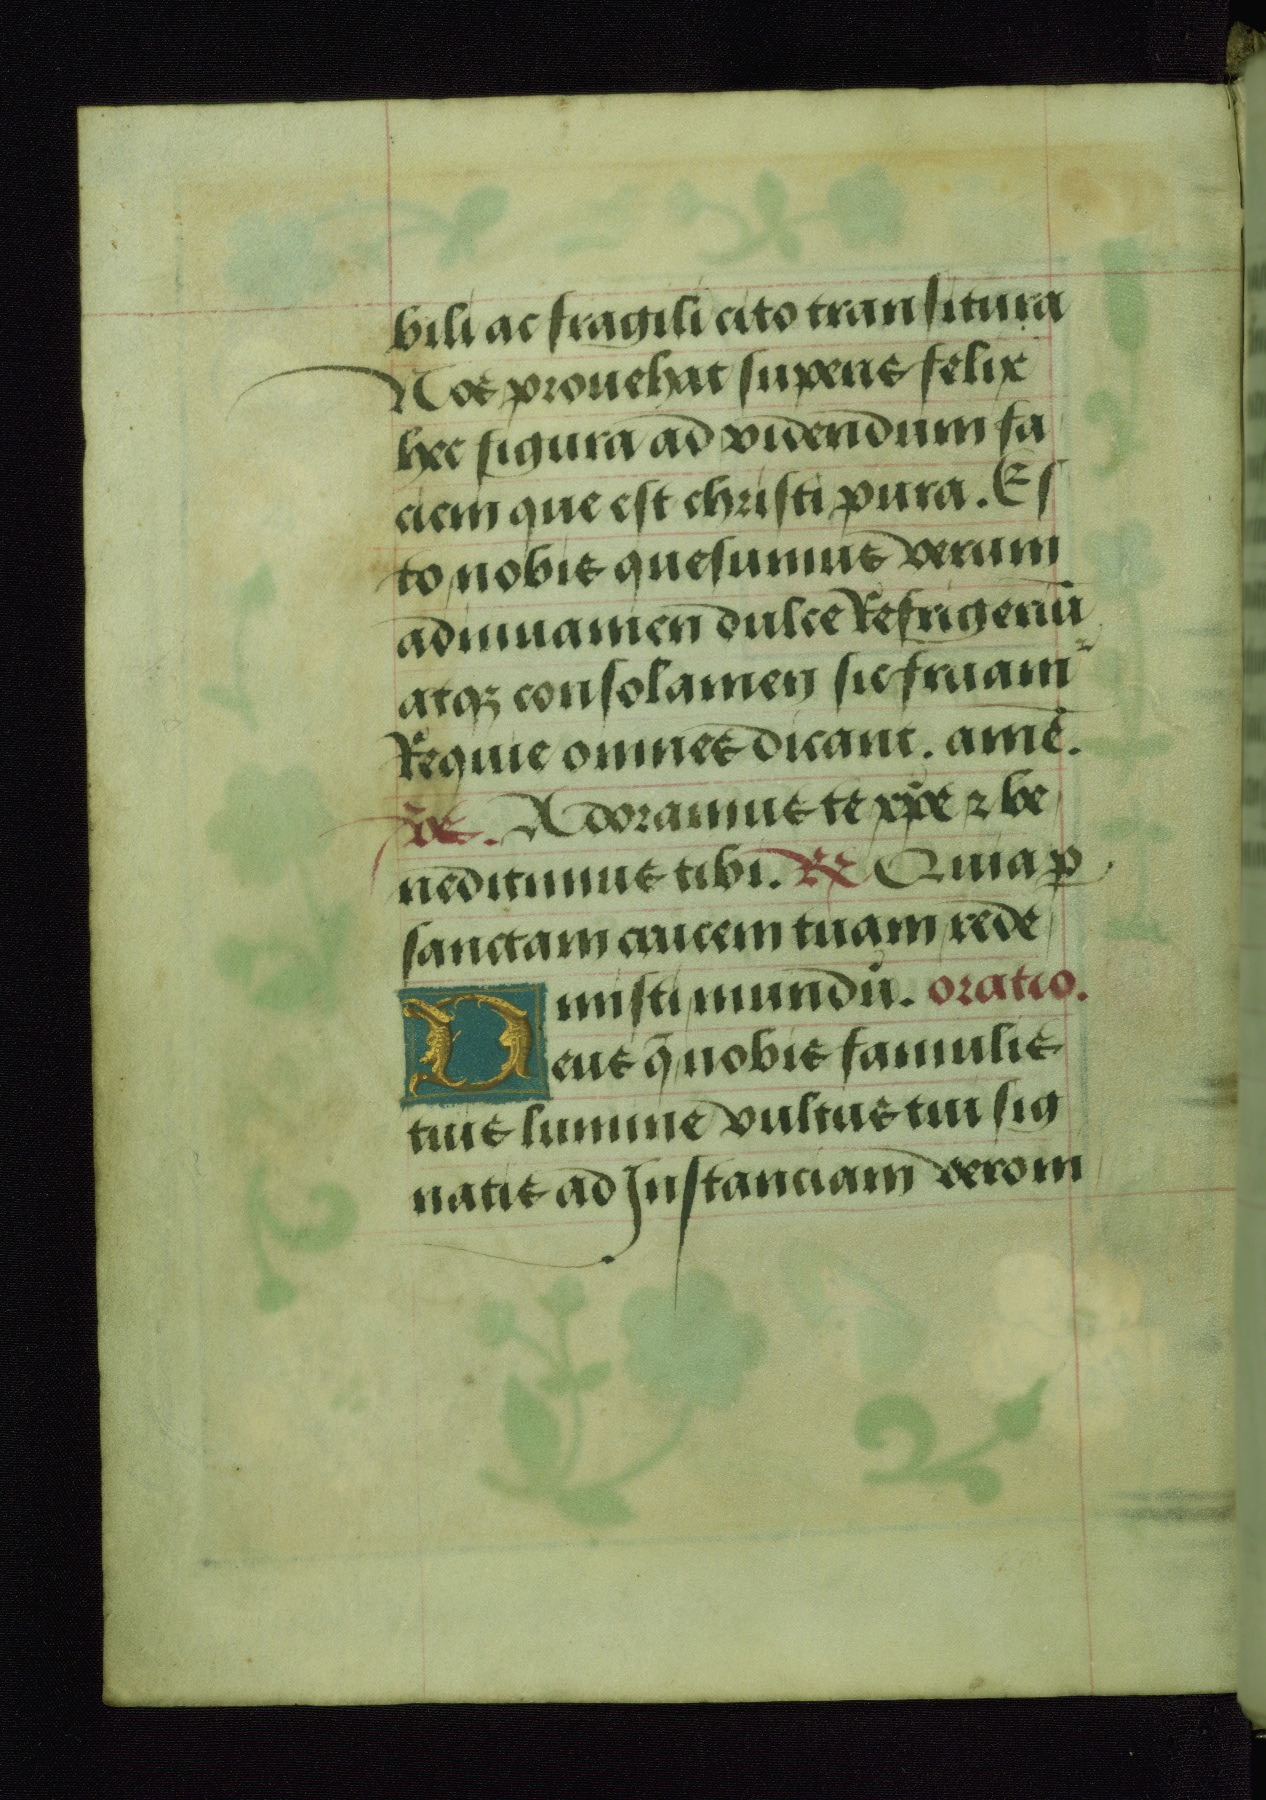 bili ac fragili cito transitura
Nos prouehat superis felix
hec figura ad videndum fa
ciem que est christi pura. Es
to nobis quesumus verum
adiuuamen dulce Refrigeriū
atqꝫ consolamen sic fruam᷑
Requie omnes dicant. amē.
v̄s. Adoramus te xp̄e ⁊ be
nedicimus tibi. ℟ Quia ꝑ
sanctam crucem tuam rede
misti mundū. oratio.
Deus q̄ nobis famulis
tuis lumine vultus tui sig
natis ad Instanciam verom